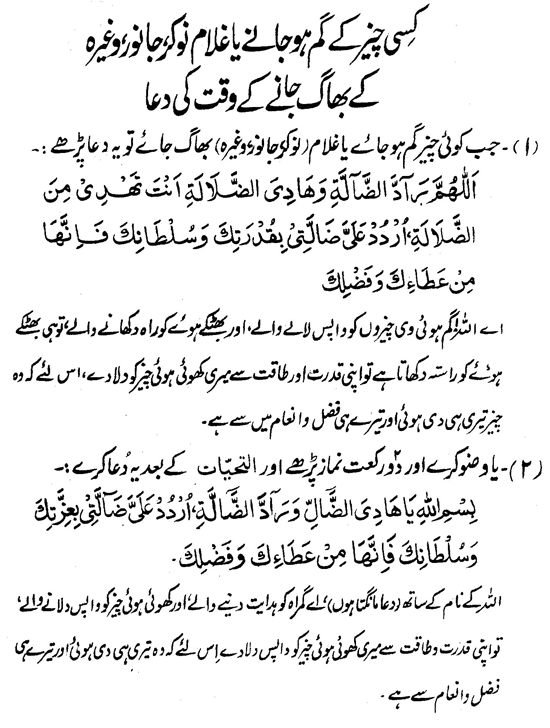 کسی چیز کے گم ہو جانے یا غلام نوکر، جانور، وغیرہ
کے بھاگ جانے کے وقت کی دعا
(۱)۔ جب کوئی چیز گم ہو جائے یا غلام (نوکر، جانور، وغیرہ) بھاگ جائے تو یہ دعا پڑھے :۔
اَللّٰهُمَّ رَآدَّ الضَّآلَّةِ وَهَادِيَ الضَّلَالَةِ اَنْتَ تَهْدِيْ مِنَ
الضَّلَالَةِ، اُرْدُدْ عَلَيَّ ضَالَّتِيْ بِقُدْرَتِكَ وَسُلْطَانِكَ فَاِنَّهَا
مِنْ عَطَاءِكَ وَفَضْلِكَ
اے اللہ! گم ہوئی وی چیزوں کو واپس لانے والے، اور بھٹکے ہوئے کو راہ دکھانے والے، تو ہی بھٹکے
ہوئے کو راستہ دکھاتا ہے تو اپنی قدرت اور طاقت سے میری کھوئی ہوئی چیز کو دلا دے، اس لئے کہ وہ
چیز تیری ہی دی ہوئی اور تیرے ہی فضل و انعام میں سے ہے۔
(۲)۔ یا وضو کرے اور دو۲ رکعت نماز پڑھے اور التحیّات کے بعد یہ دُعا کرے :۔
بِسْمِ اللهِ يَا هَادِيَ الضَّالِّ وَرَآدَّ الضَّالَّةِ، اُرْدُدْ عَلَيَّ ضَآلَّتِيْ بِعِزَّتِكَ
وَسُلْطَانِكَ فَاِنَّهَا مِنْ عَطَاءِكَ وَفَضْلِكَ۔
اللہ کے نام کے ساتھ (دعا مانگتا ہوں)، اے گمراہ کو ہدایت دینے والے، اور کھوئی ہوئی چیز کو واپس دلانے والے،
تو اپنی قدرت و طاقت سے میری کھوئی ہوئی چیز کو واپس دلا دے اِس لئے کہ وہ تیری ہی دی ہوئی اور تیرے ہی
فضل و انعام سے ہے۔